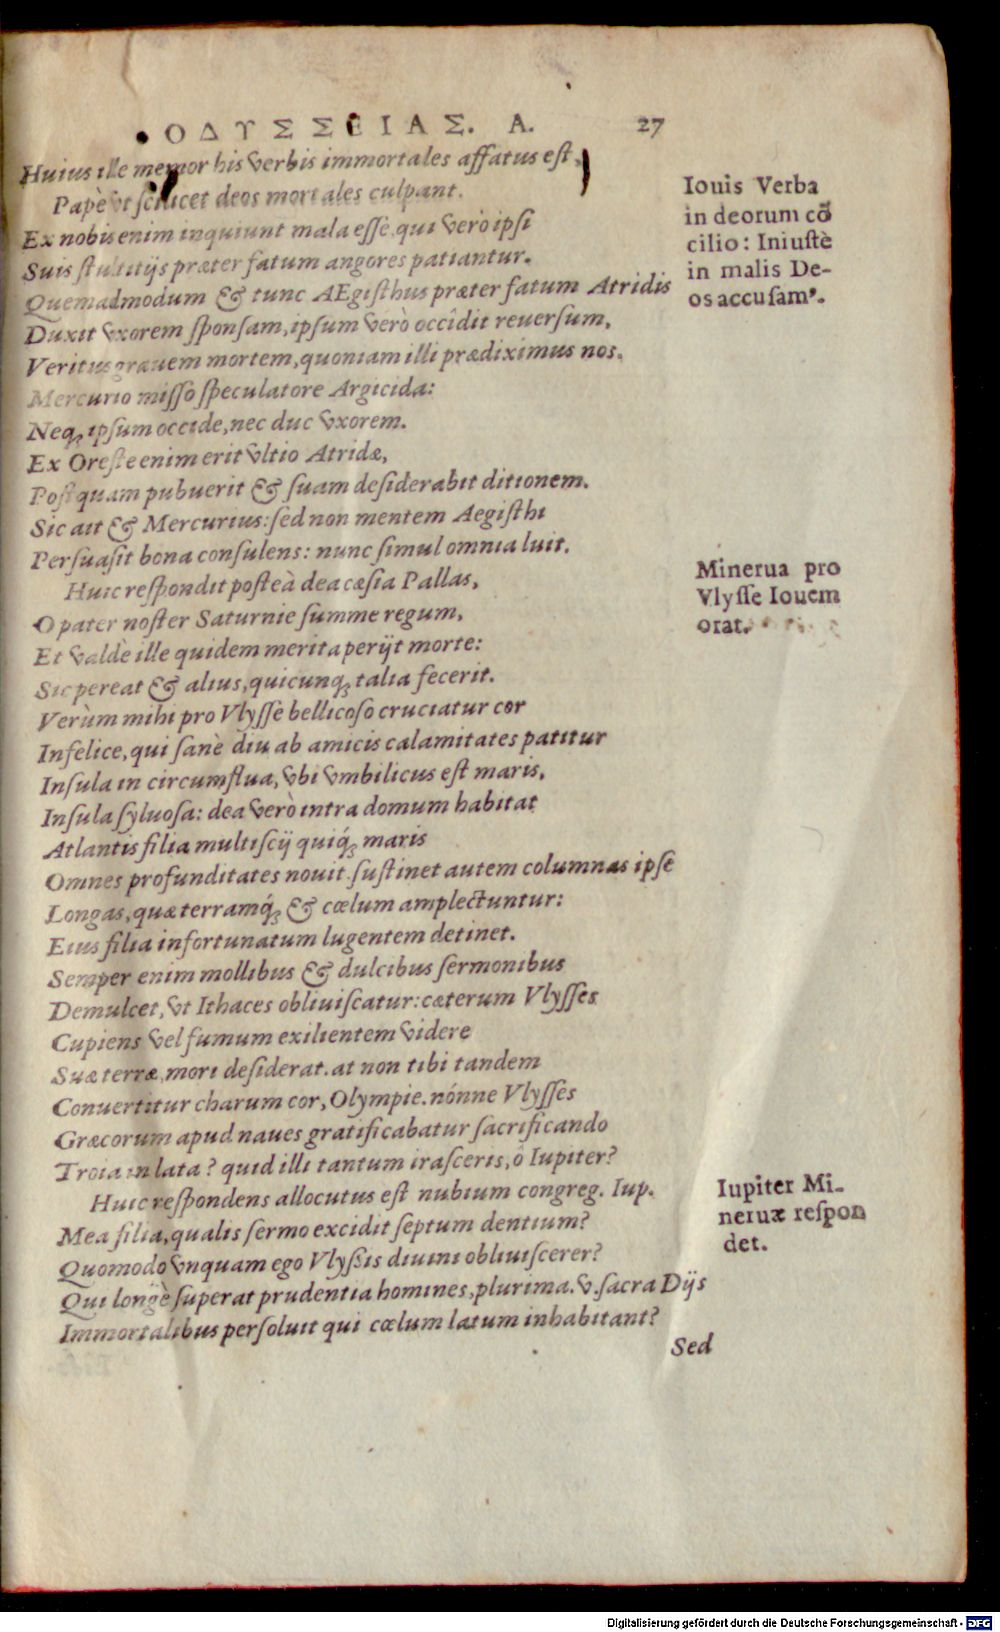 ΟΔΥΣΣΕΙΑΣ. Α. 27
Huius ille memor his verbis immortales affatus est,
Papè vt scilicet deos mortales culpant.
Ex nobis enim inquiunt mala esse, qui verò ipsi
Suis stultitijs præter fatum angores patiantur.
Quemadmodum & tunc AEgisthus præter fatum Atridis
Duxit vxorem sponsam, ipsum verò occîdit reuersum,
Veritus grauem mortem, quoniam illi prædiximus nos,
Mercurio misso speculatore Argicida:
Neq; ipsum occide, nec duc vxorem.
Ex Oreste enim erit vltio Atridæ,
Postquam pubuerit & suam desiderabit ditionem.
Sic ait & Mercurius: sed non mentem Aegisthi
Persuasit bona consulens: nunc simul omnia luit.
Huic respondit posteà dea cæsia Pallas,
O pater noster Saturnie summe regum,
Et valdè ille quidem merita perijt morte:
Sic pereat & alius, quicunq; talia fecerit.
Verùm mihi pro Vlysse bellicoso cruciatur cor
Infelice, qui sanè diu ab amicis calamitates patitur
Insula in circumflua, vbi vmbilicus est maris,
Insula syluosa: dea verò intra domum habitat
Atlantis filia multiscij quiq́; maris
Omnes profunditates nouit. sustinet autem columnas ipse
Longas, quæ terramq́; & cœlum amplectuntur:
Eius filia infortunatum lugentem detinet.
Semper enim mollibus & dulcibus sermonibus
Demulcet, vt Ithaces obliuiscatur: cæterum Vlysses
Cupiens vel fumum exilientem videre
Suæ terræ, mori desiderat. at non tibi tandem
Conuertitur charum cor, Olympie. nónne Vlysses
Græcorum apud naues gratificabatur sacrificando
Troia in lata? quid illi tantum irasceris, ô Iupiter?
Huic respondens allocutus est nubium congreg. Iup.
Mea filia, qualis sermo excidit septum dentium?
Quomodo vnquam ego Vlyssis diuini obliuiscerer?
Qui longè superat prudentia homines, plurima. v. sacra Dijs
Immortalibus persoluit qui cœlum latum inhabitant?
Sed
Iouis Verba
in deorum cō
cilio: Iniustè
in malis De-
os accusamꝰ.
Minerua pro
Vlysse Iouem
orat.
Iupiter Mi-
neruæ respon
det.
Digitalisierung gefördert durch die Deutsche Forschungsgemeinschaft - DFG